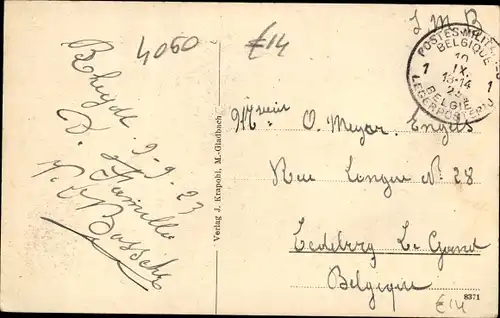 4060
€14
S. M. B
POSTES MILITAIRES
BELGIQUE
10
IX.
13-14
23
1 1
BELGIE
LEGERPOSTERIJ
Rheydt 9-9.23
D.
Verlag J. Krapohl, M.-Gladbach
O. Meyer. Engels
Rue Longue N° 28
Ledeberg Lz Gand
Belgique
€14
8371